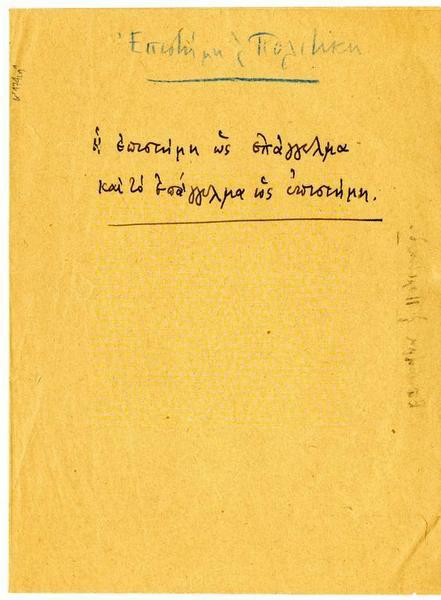 Ἐπιστήμη & Πολιτική
ἡ ἐπιστήμη ὡς ἐπάγγελμα
καὶ τὸ ἐπάγγελμα ὡς ἐπιστήμη.